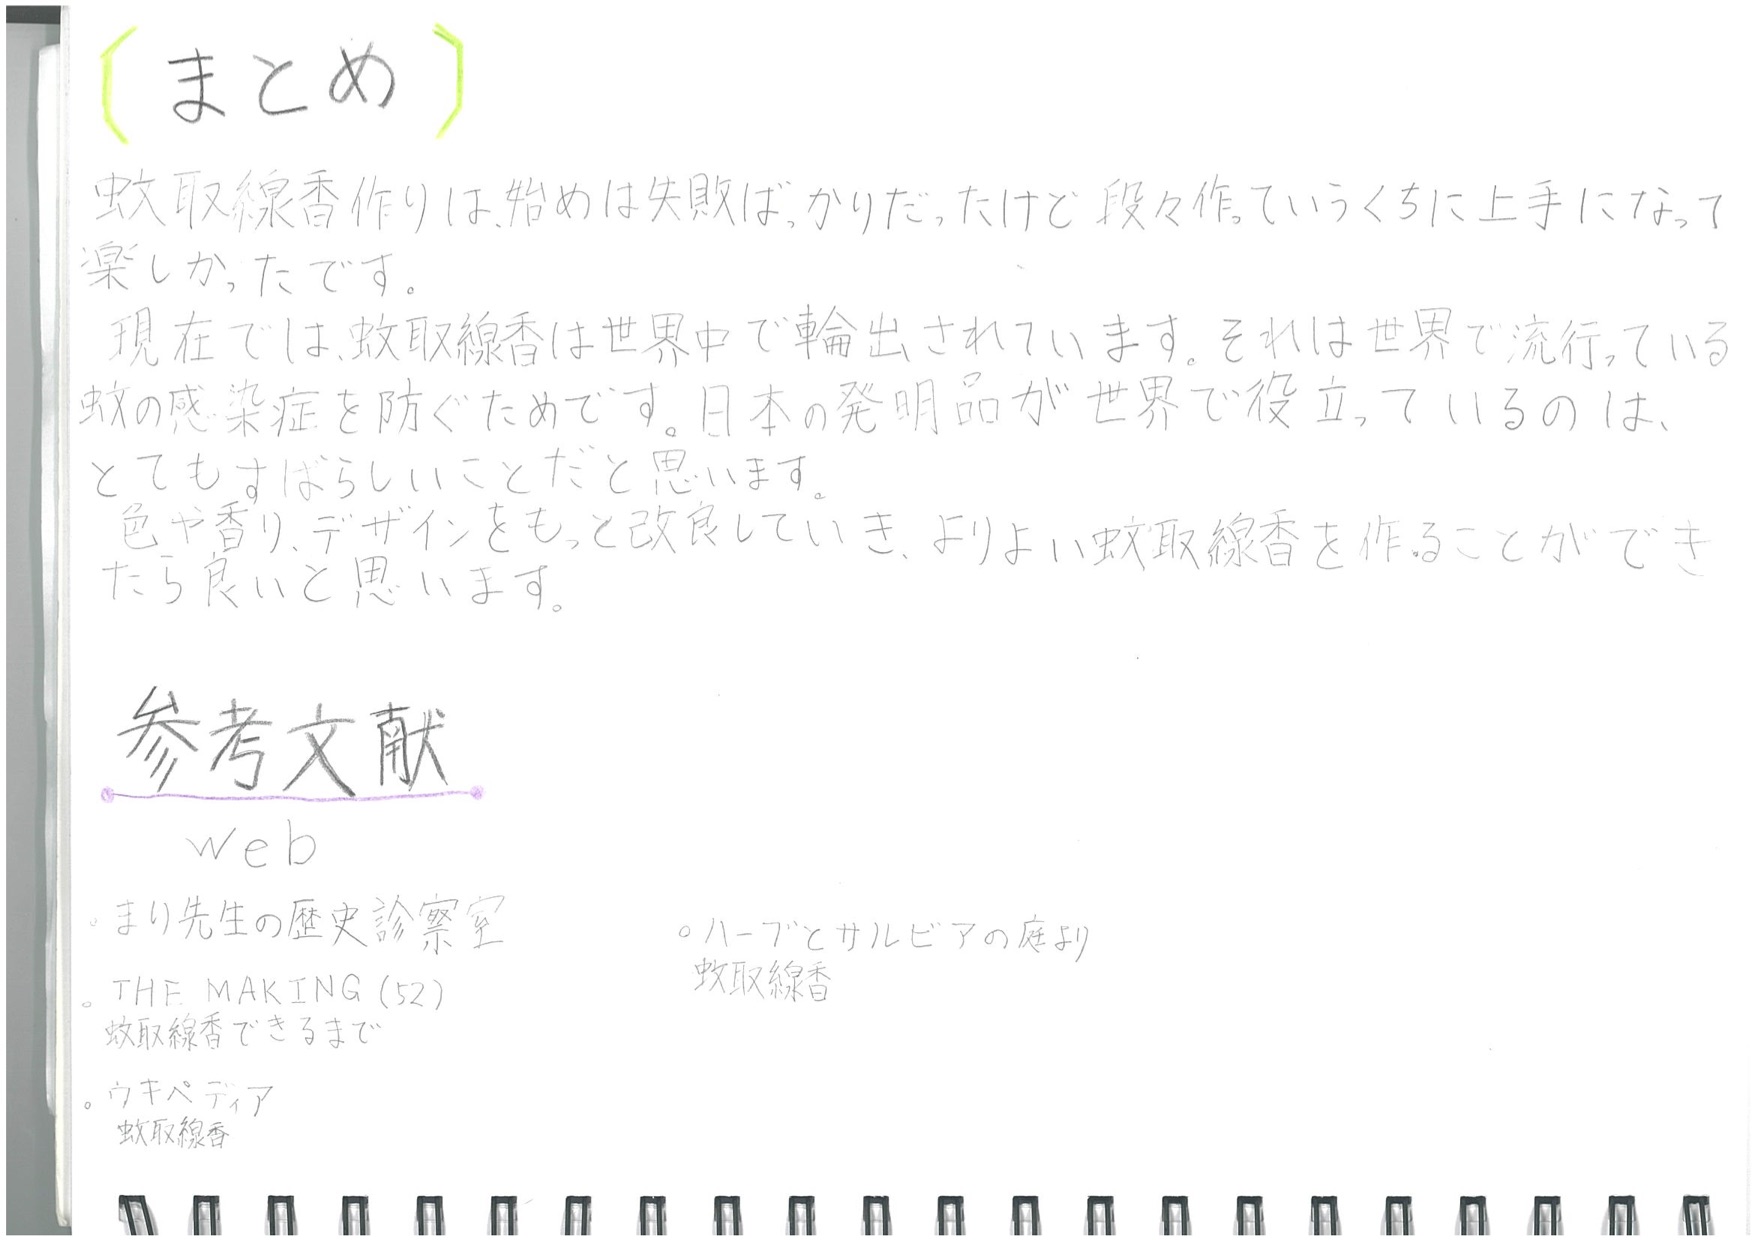 (まとめ)
蚊取線香作りは、始めは失敗ばっかりだったけど段々作っていうくちに上手になって
楽しかったです。
現在では、蚊取線香は世界中で輪出されています。それは世界で流行っている
蚊の感染症を防ぐためです。日本の発明品が世界で役立っているのは、
とてもすばらしいことだと思います。
色や香り、デザインをもっと改良していき、よりよい蚊取線香を作ることができ
たら良いと思います。
参考文献
web
。まり先生の歴史診察室
。THE MAKING (52)
蚊取線香できるまで
。ウキペディア
蚊取線香
。ハーブとサルビアの庭より
蚊取線香